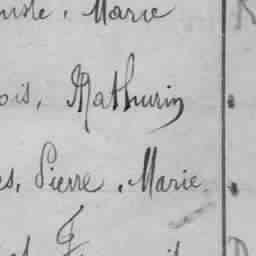 Marie
ois, Mathurin
es, Pierre, Marie